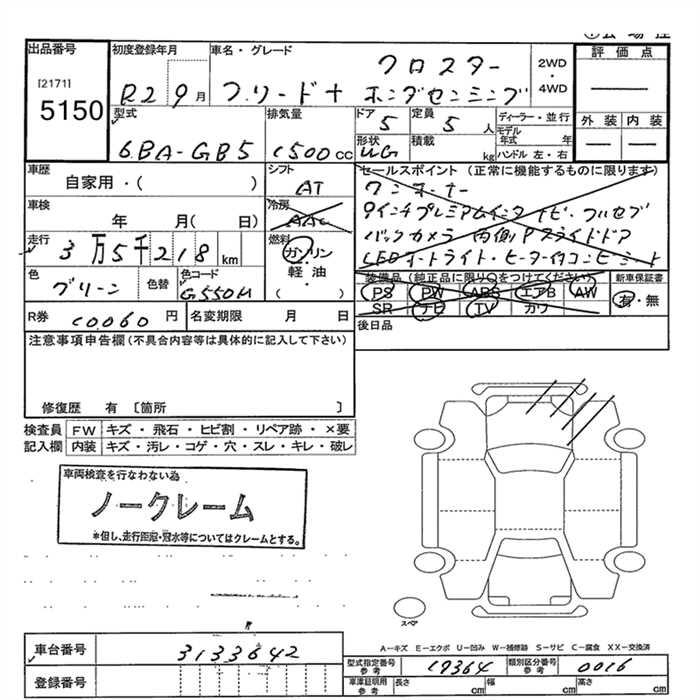 出品番号
[2171]
5150
初度登録年月
R2 9月
車名・グレード
フリード+
クロスター
ホンダセンシング
2WD
・
4WD
評価点
外装 内装
型式
6BA-GB5
排気量
1500cc
ドア
5
定員
5人
形状
UG
積載
kg
ディーラー・並行
モデル年式 年
ハンドル 左・右
車歴
自家用・( )
シフト
AT
車検
年 月( 日)
冷房
AAC
走行
3万5千218km
燃料
ガソリン
軽油
・
( )
色
グリーン
色替
色コード
G550M
セールスポイント (正常に機能するものに限ります)
ワンオーナー
9インチプレミアムインターナビ・フルセグ
バックカメラ 両側Pスライドドア
LEDオートライト・ヒーター付コンビシート
装備品 (純正品に限り○をつけてください)
PS PW ABS エアB AW
SR ナビ TV カワ
新車保証書
有・無
R券
10060円
名変期限 月 日
後日品
注意事項申告欄(不具合内容等は具体的に記入して下さい)
修復歴 有 〔箇所 〕
検査員記入欄
FW キズ・飛石・ヒビ割・リペア跡・×要
内装 キズ・汚レ・コゲ・穴・スレ・キレ・破レ
車両検査を行なわない為
ノークレーム
*但し、走行距離・冠水等についてはクレームとする。
スペア
A-キズ E-エクボ U-凹み W-補修跡 S-サビ C-腐食 XX-交換済
車台番号
3133642
登録番号
型式指定番号
参考
19364
類別区分番号
参考
0016
車庫証明用
参考
長さ cm 幅 cm 高さ cm